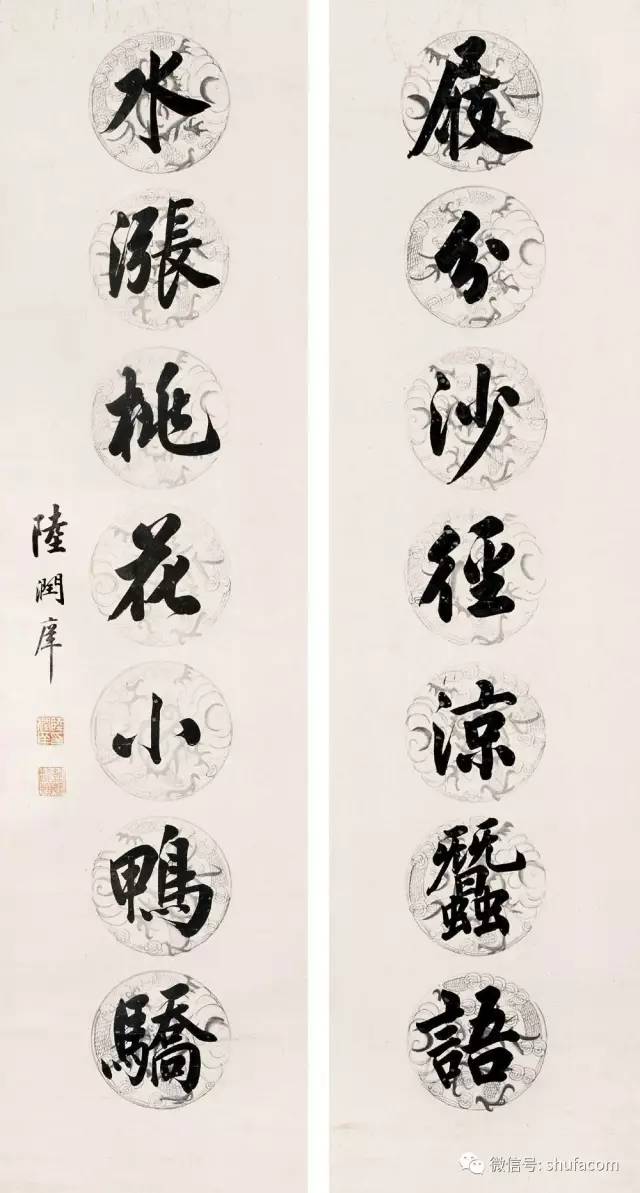 屐分沙徑涼蠶語
水漲桃花小鴨驕
陸潤庠
微信号: shufacom